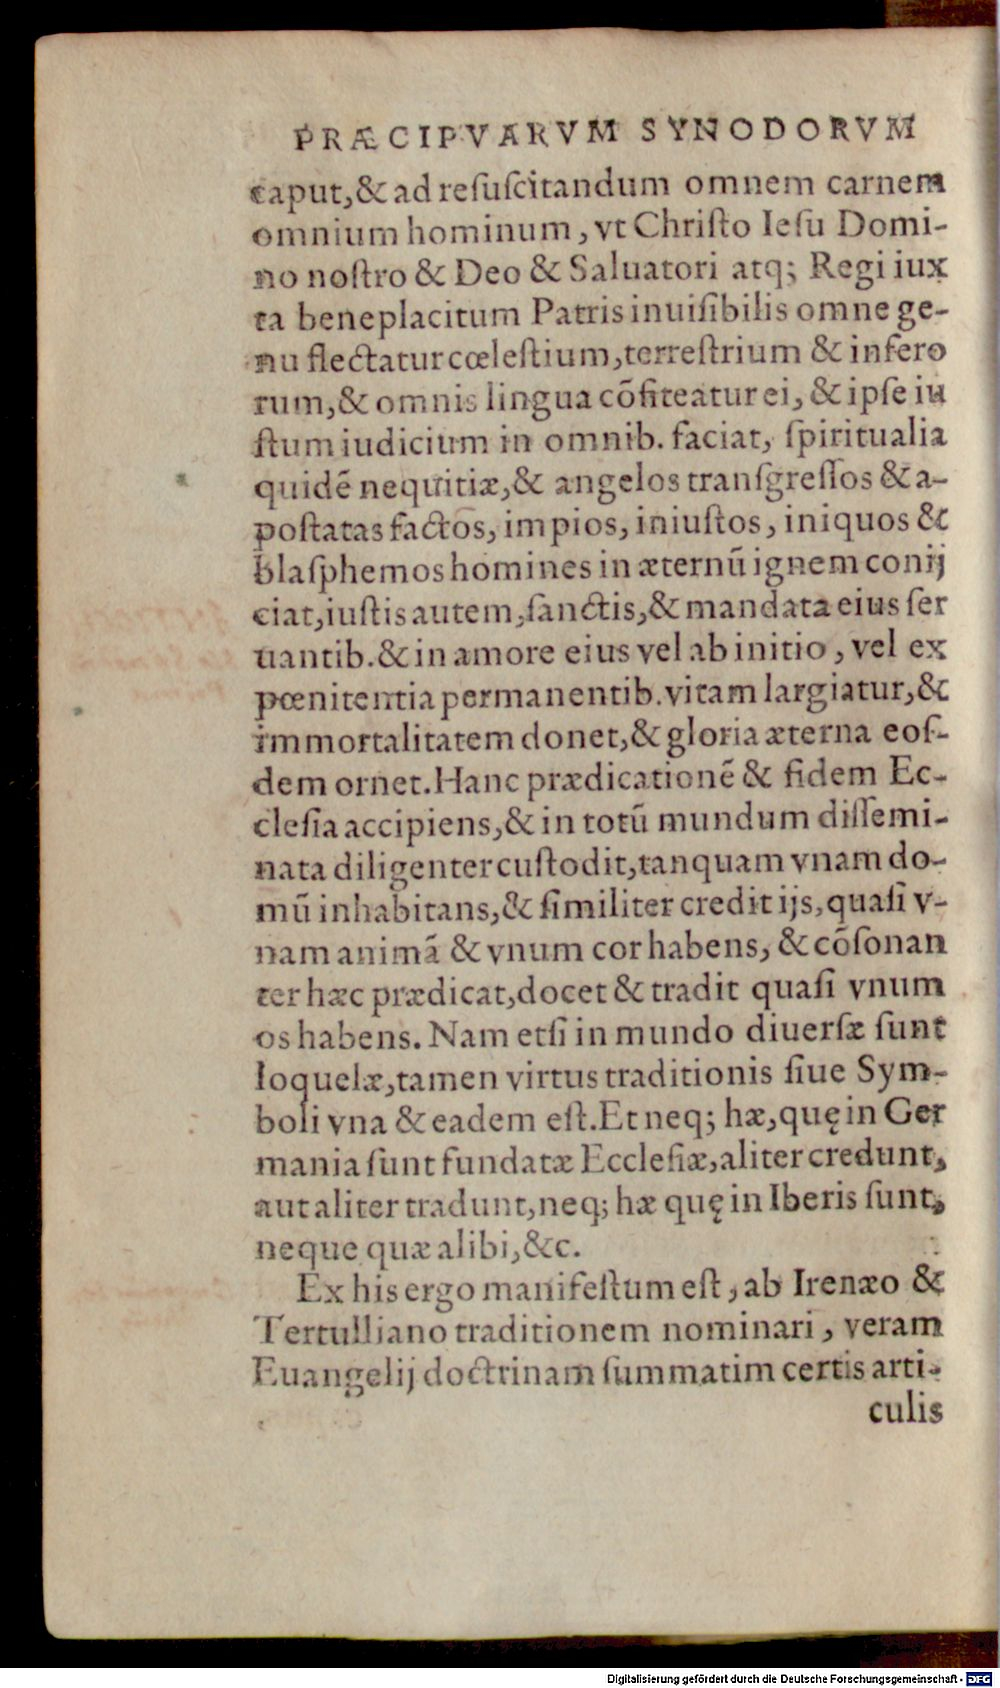 PRÆCIPVARVM SYNODORVM
caput,& ad reſuſcitandum omnem carnem
omnium hominum, vt Chriſto Ieſu Domi-
no noſtro & Deo & Saluatori atq; Regi iux
ta beneplacitum Patris inuiſibilis omne ge-
nu flectatur cœleſtium, terreſtrium & infero
rum,& omnis lingua cōfiteatur ei, & ipſe iu
ſtum iudicium in omnib. faciat, ſpiritualia
quidē nequitiæ,& angelos tranſgreſſos & a-
poſtatas factos, impios, iniuſtos, iniquos &
blaſphemos homines in æternū ignem conij
ciat, iuſtis autem, ſanctis,& mandata eius ſer
uantib.& in amore eius vel ab initio, vel ex
pœnitentia permanentib. vitam largiatur,&
immortalitatem donet,& gloria æterna eoſ-
dem ornet. Hanc prædicationē & fidem Ec-
cleſia accipiens,& in totū mundum diſſemi-
nata diligenter cuſtodit, tanquam vnam do-
mū inhabitans,& ſimiliter credit ijs, quaſi v-
nam animā & vnum cor habens, & cōſonan
ter hæc prædicat, docet & tradit quaſi vnum
os habens. Nam etſi in mundo diuerſæ ſunt
loquelæ, tamen virtus traditionis ſiue Sym-
boli vna & eadem eſt. Et neq; hæ, quę in Ger
mania ſunt fundatæ Eccleſiæ, aliter credunt,
aut aliter tradunt, neq; hæ quę in Iberis ſunt,
neque quæ alibi,&c.
Ex his ergo manifeſtum eſt, ab Irenæo &
Tertulliano traditionem nominari, veram
Euangelij doctrinam ſummatim certis arti-
culis
Digitalisierung gefördert durch die Deutsche Forschungsgemeinschaft - DFG